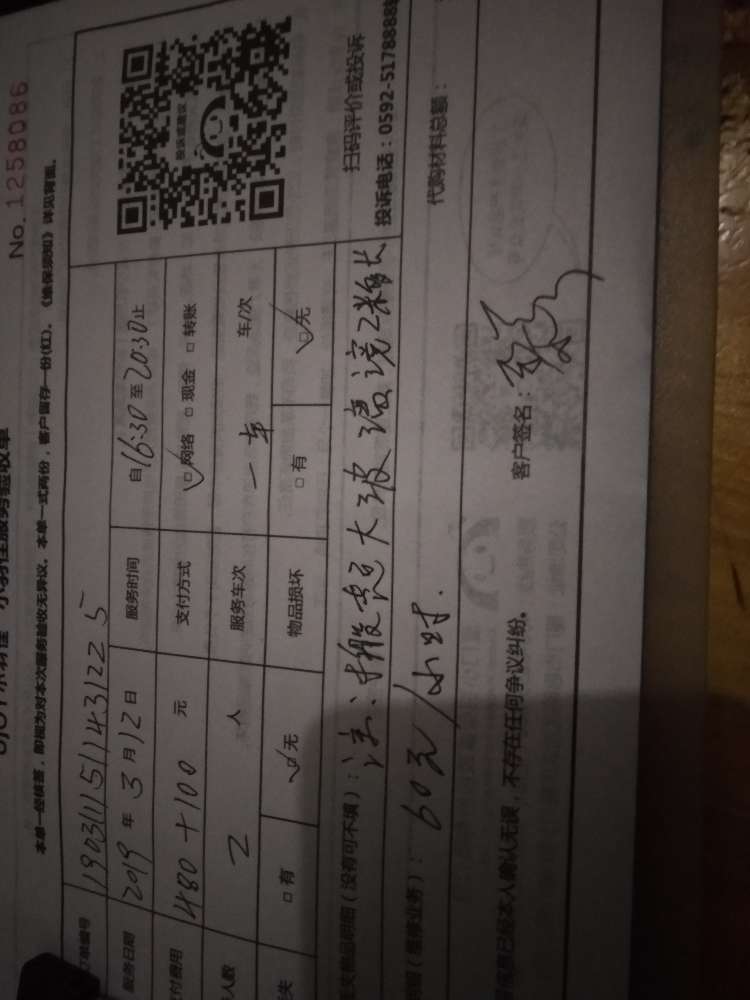 No. 1258086
服务验收单
本单一经核签，即视为对本次服务验收无异议。本单一式两份，客户留存一份(红)，《维保须知》详见背面。
订单编号 190311151143122 5
服务日期 2019 年 3 月 12 日 服务时间 自 16:30 至 20:30 止
付费用 480+100 元 支付方式 □网络 □现金 □转账
人数 2 人 服务车次 一车 车/次
失 □有 □无 物品损坏 □有 □无
投诉或建议
扫码评价或投诉
投诉电话：0592-5178888
物品明细（没有可不填）：注：搬超大玻璃 2米长
（维修业务）： 60元/小时.
代购材料总额：
信息已经本人确认无误，不存在任何争议纠纷。
客户签名：